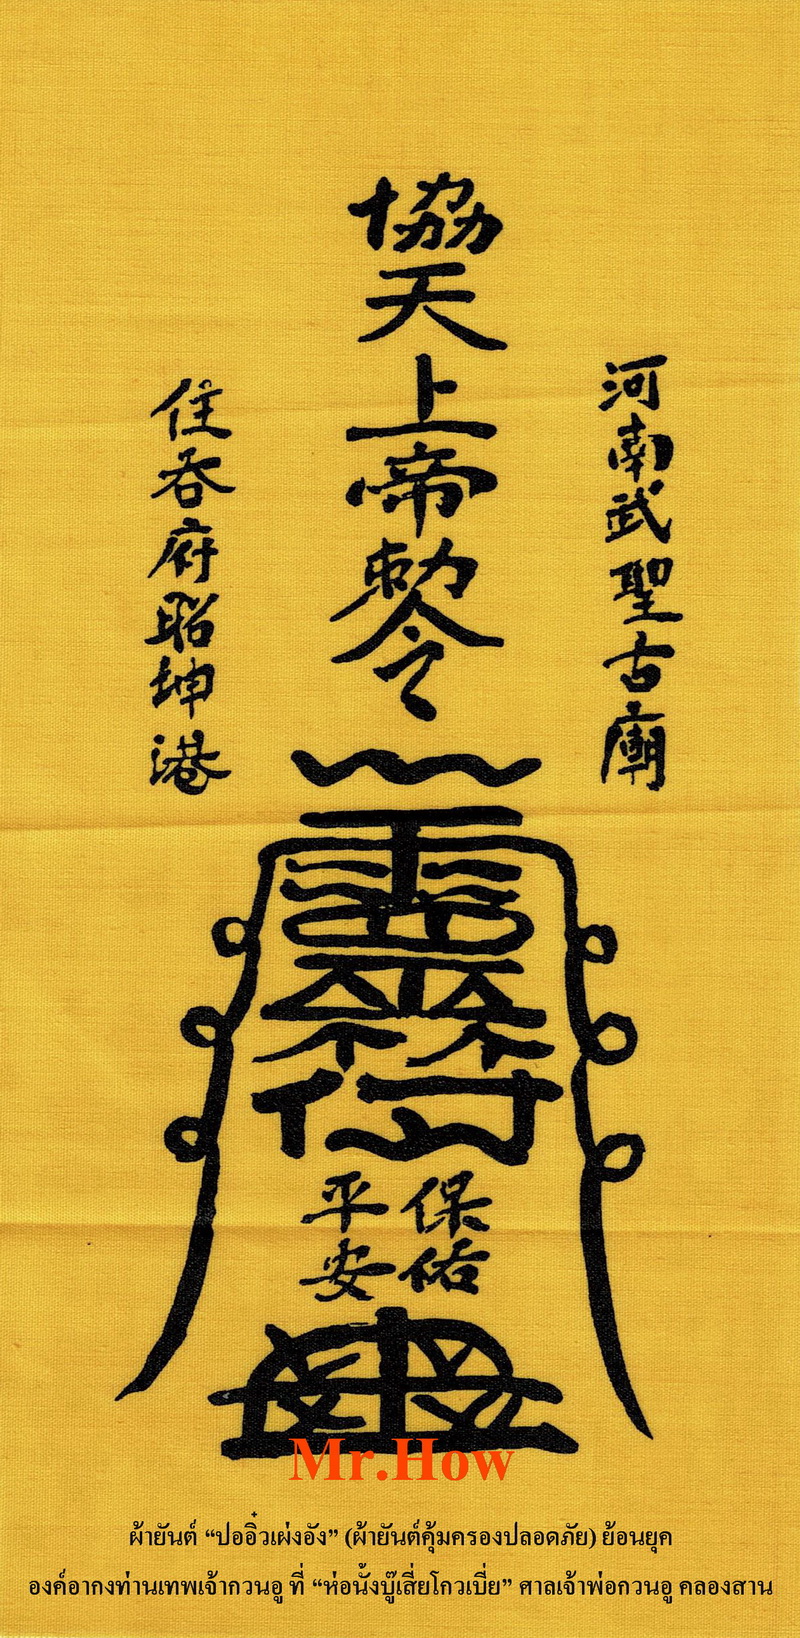 河南武聖古廟
協天上帝勅令
住吞府昭坤港
靈符
保佑
平安
Mr.How
ผ้ายันต์ “ปออิ๋วเผ่งอัง” (ผ้ายันต์คุ้มครองปลอดภัย) ย้อนยุค
องค์อากงท่านเทพเจ้ากวนอู ที่ “ห่อนั้งบู๊เสี่ยโกวเบี่ย” ศาลเจ้าพ่อกวนอู คลองสาน